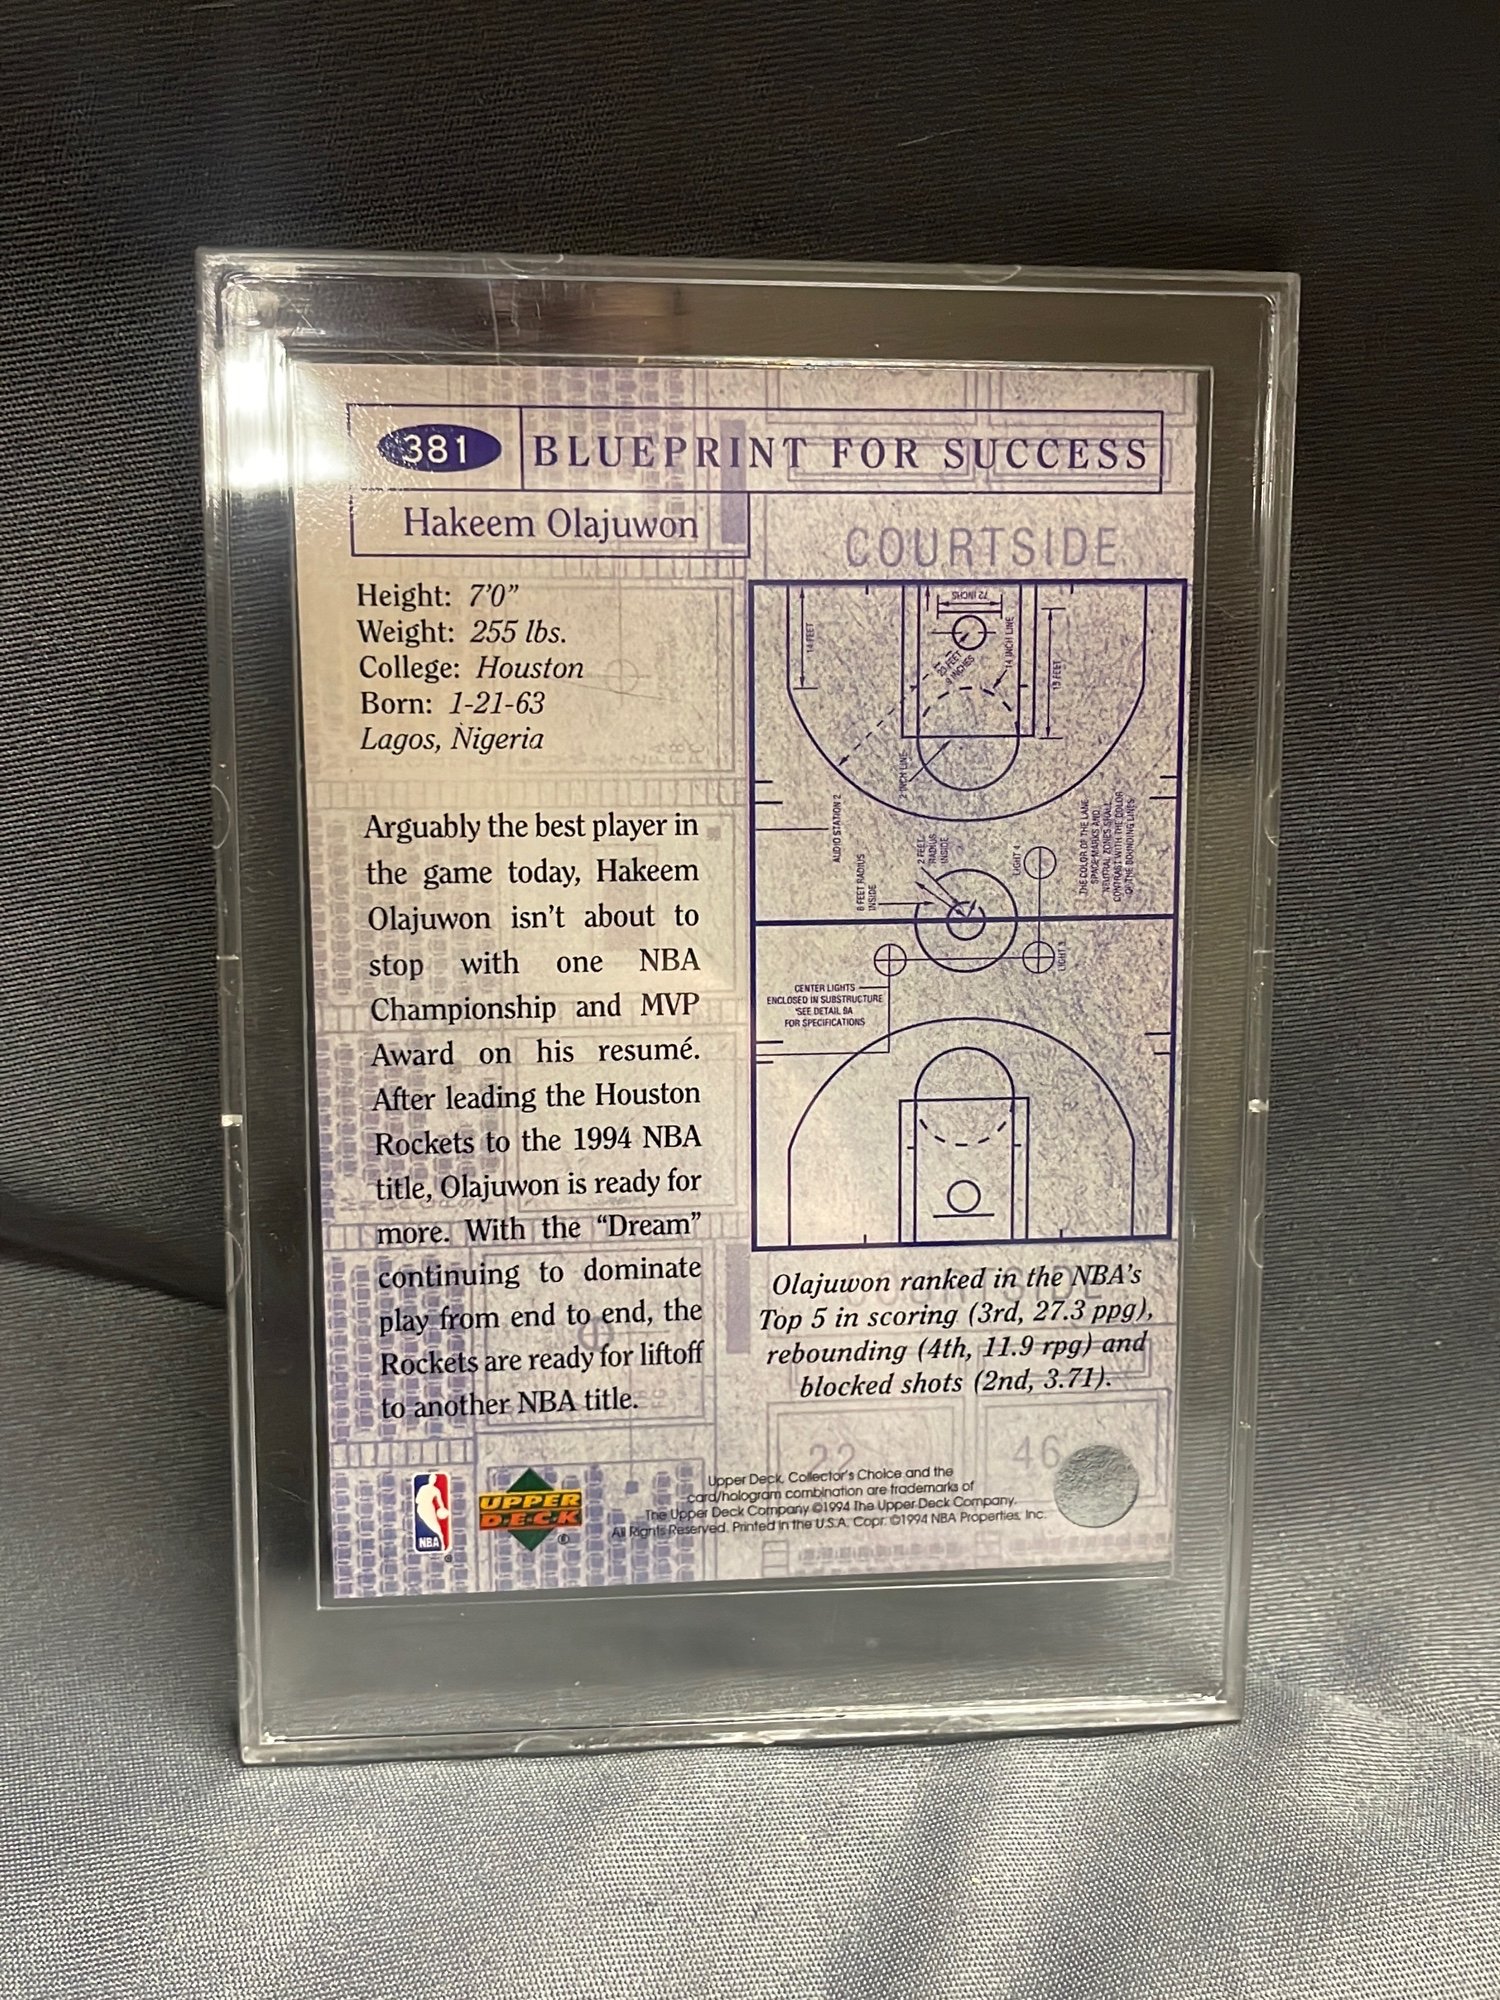 381
BLUEPRINT FOR SUCCESS
Hakeem Olajuwon
Height: 7'0”
Weight: 255 lbs.
College: Houston
Born: 1-21-63
Lagos, Nigeria
Arguably the best player in
the game today, Hakeem
Olajuwon isn't about to
stop with one NBA
Championship and MVP
Award on his resumé.
After leading the Houston
Rockets to the 1994 NBA
title, Olajuwon is ready for
more. With the “Dream”
continuing to dominate
play from end to end, the
Rockets are ready for liftoff
to another NBA title.
COURTSIDE
72 INCHS
14 FEET
23 FEET
9 INCHES
14 INCH LINE
19 FEET
2 INCH LINE
AUDIO STATION 2
8 FEET RADIUS
INSIDE
2 FEET
RADIUS
INSIDE
LIGHT 4
THE COLOR OF THE LANE
SPACE MARKS AND
NEUTRAL ZONES SHALL
CONTRAST WITH THE COLOR
OF THE BOUNDING LINES
LIGHT 3
CENTER LIGHTS
ENCLOSED IN SUBSTRUCTURE
*SEE DETAIL 9A
FOR SPECIFICATIONS
SIDE
Olajuwon ranked in the NBA's
Top 5 in scoring (3rd, 27.3 ppg),
rebounding (4th, 11.9 rpg) and
blocked shots (2nd, 3.71).
22
46
NBA
®
UPPER
D·E·C·K
®
Upper Deck, Collector's Choice and the
card/hologram combination are trademarks of
The Upper Deck Company ©1994 The Upper Deck Company.
All Rights Reserved. Printed in the U.S.A. Copr. ©1994 NBA Properties, Inc.